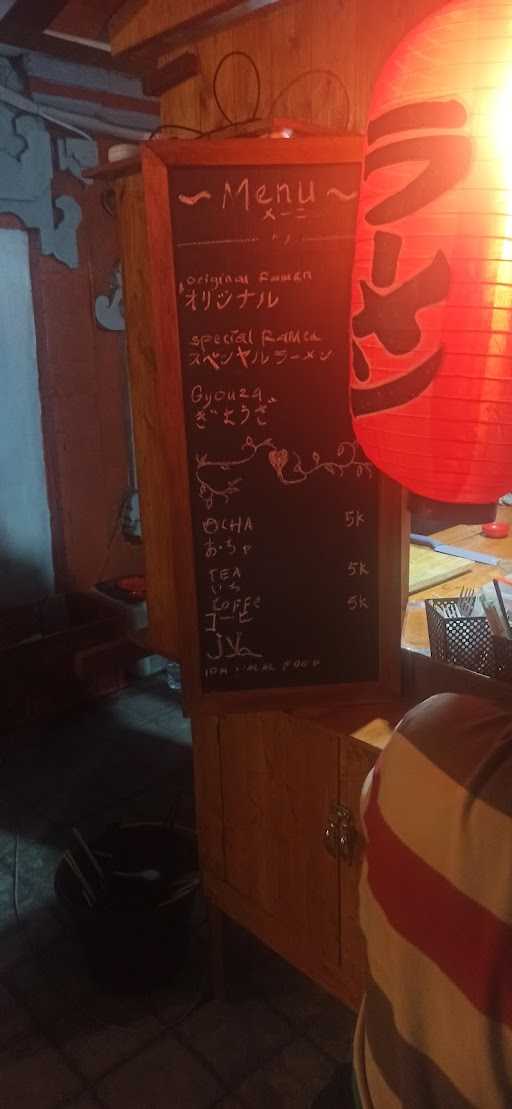 ~ Menu ~
メーニ
original Ramen
オリジナル
special RaMen
スペシャルラーメン
Gyouza
ぎょうざ
OCHA 5k
おちゃ
TEA 5k
COFFE 5k
コーヒ
ラーメン